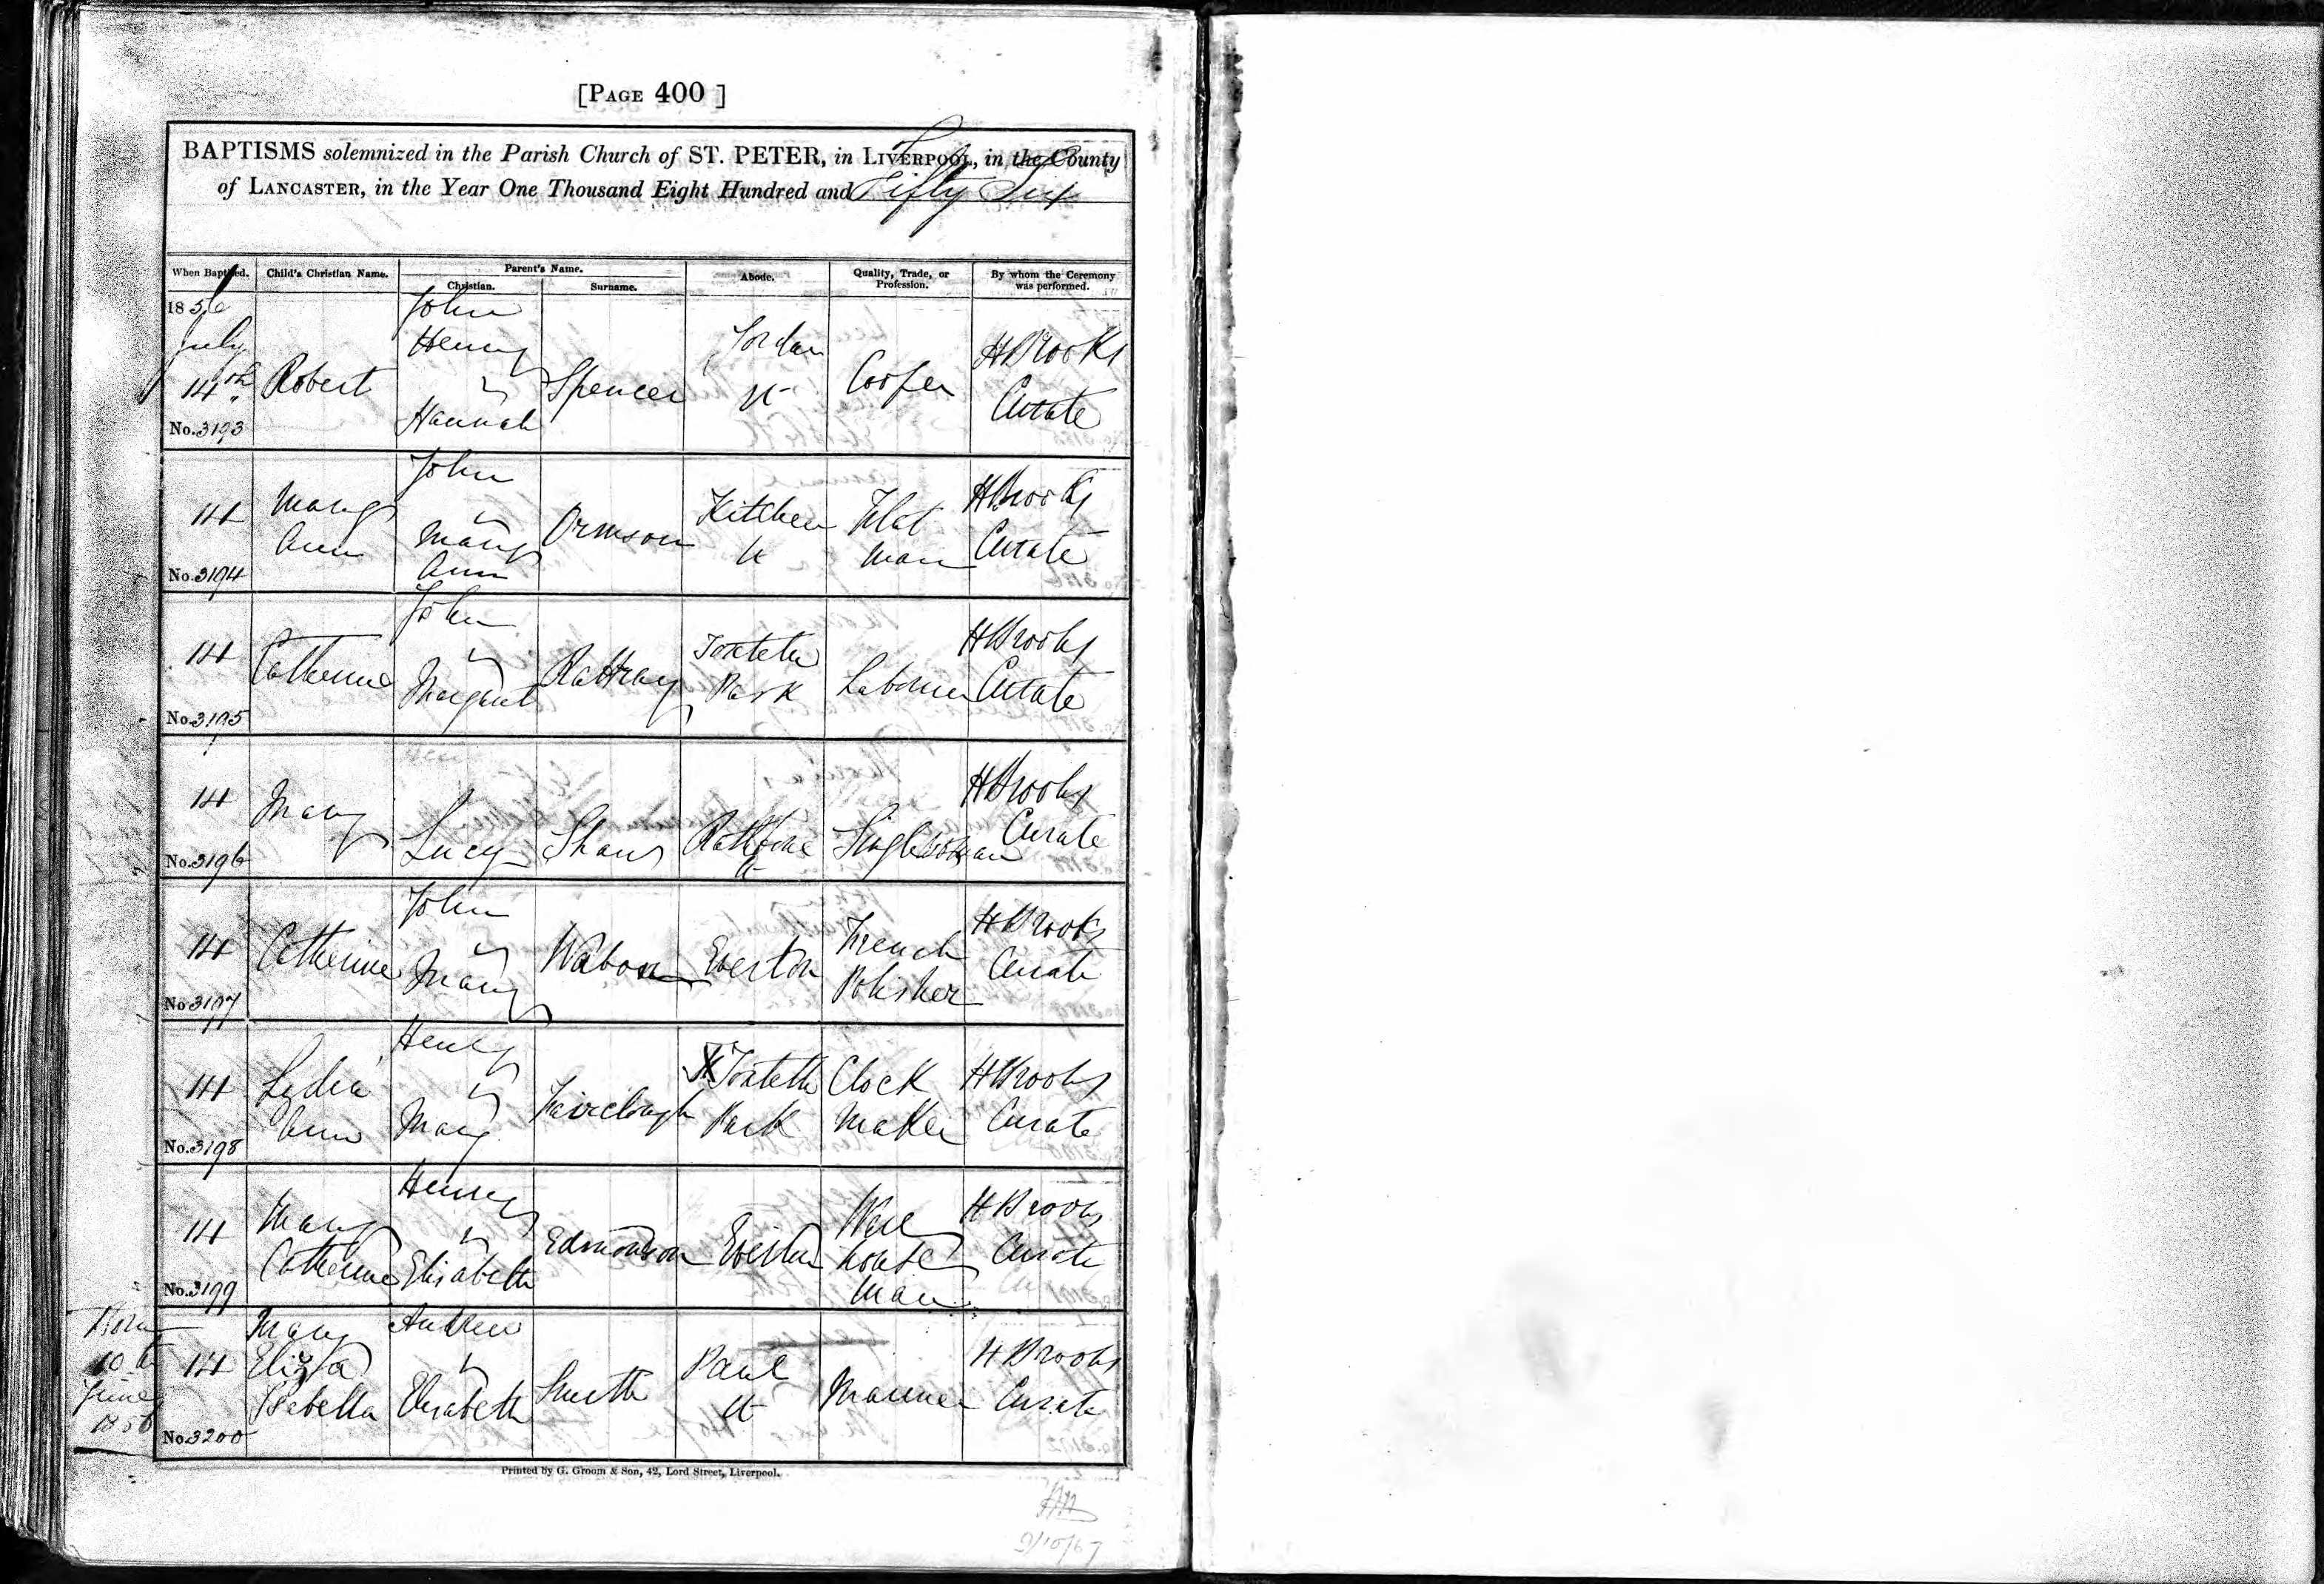 [PAGE 400 ]
BAPTISMS solemnized in the Parish Church of ST. PETER, in LIVERPOOL, in the County
of LANCASTER, in the Year One Thousand Eight Hundred and Fifty Six
When Baptized. Child's Christian Name. Parent's Name. Christian. Surname. Abode. Quality, Trade, or Profession. By whom the Ceremony was performed.
1856
July
14th
No. 3193
Robert
John
Henry
&
Hannah
Spencer
Jordan
St
Cooper
H Brooks
Curate
14
No. 3194
Mary
Ann
John
&
Mary
Ann
Ormson
Kitchen
St
Flat
man
H Brooks
Curate
14
No. 3195
Catherine
John
&
Margaret
Rattray
Toxteth
Park
Laborer
H Brooks
Curate
14
No. 3196
Mary
Lucy
Shaw
Rathbone
St
Singlewoman
H Brooks
Curate
14
No 3197
Catherine
John
&
Mary
Watson
Everton
French
Polisher
H Brooks
Curate
14
No. 3198
Lydia
Ann
Henry
&
Mary
Fairclough
Toxteth
Park
Clock
Maker
H Brooks
Curate
14
No. 3199
Mary
Catherine
Henry
&
Elisabeth
Edmondson
Everton
Ware
house
man
H Brooks
Curate
Born
10th
June
1856
14
No. 3200
Mary
Eliza
Isabella
Andrew
&
Elisabeth
Smith
Paul
St
Mariner
H Brooks
Curate
Printed by G. Groom & Son, 42, Lord Street, Liverpool.
9/10/67